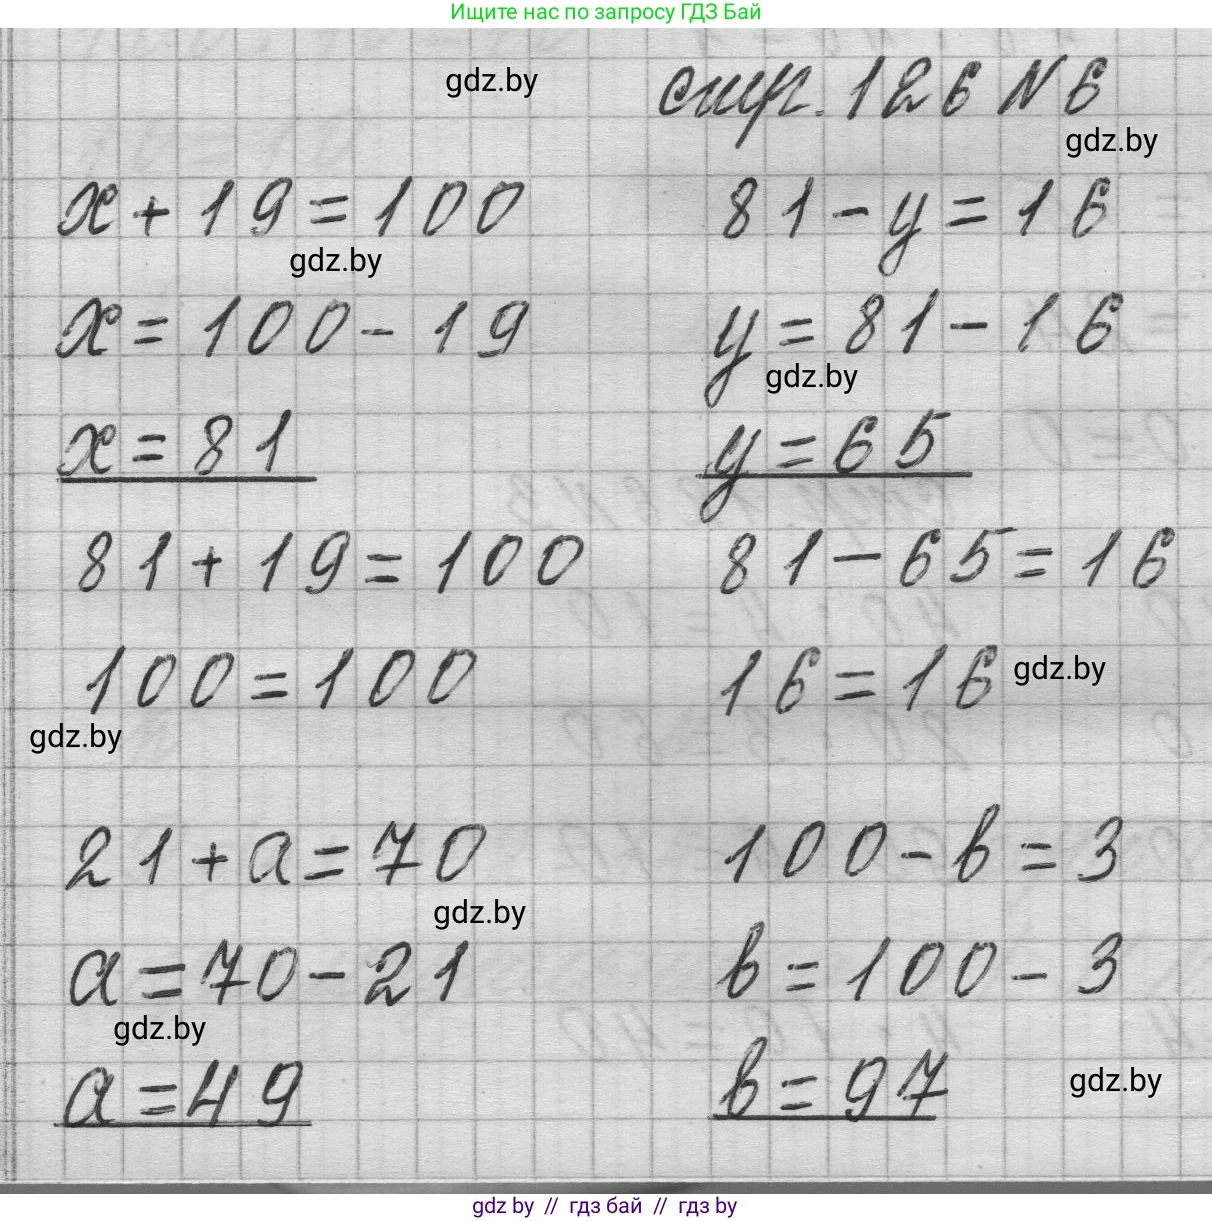 Ищите нас по запросу ГДЗ Бай
gdz.by
стр. 126 N 6
gdz.by
x + 19 = 100
81 - y = 16
gdz.by
x = 100 - 19
y = 81 - 16
gdz.by
x = 81
y = 65
81 + 19 = 100
81 - 65 = 16
100 = 100
16 = 16
gdz.by
gdz.by
21 + a = 70
100 - в = 3
gdz.by
a = 70 - 21
в = 100 - 3
gdz.by
a = 49
в = 97
gdz.by
gdz by // гдз бай // гдз by